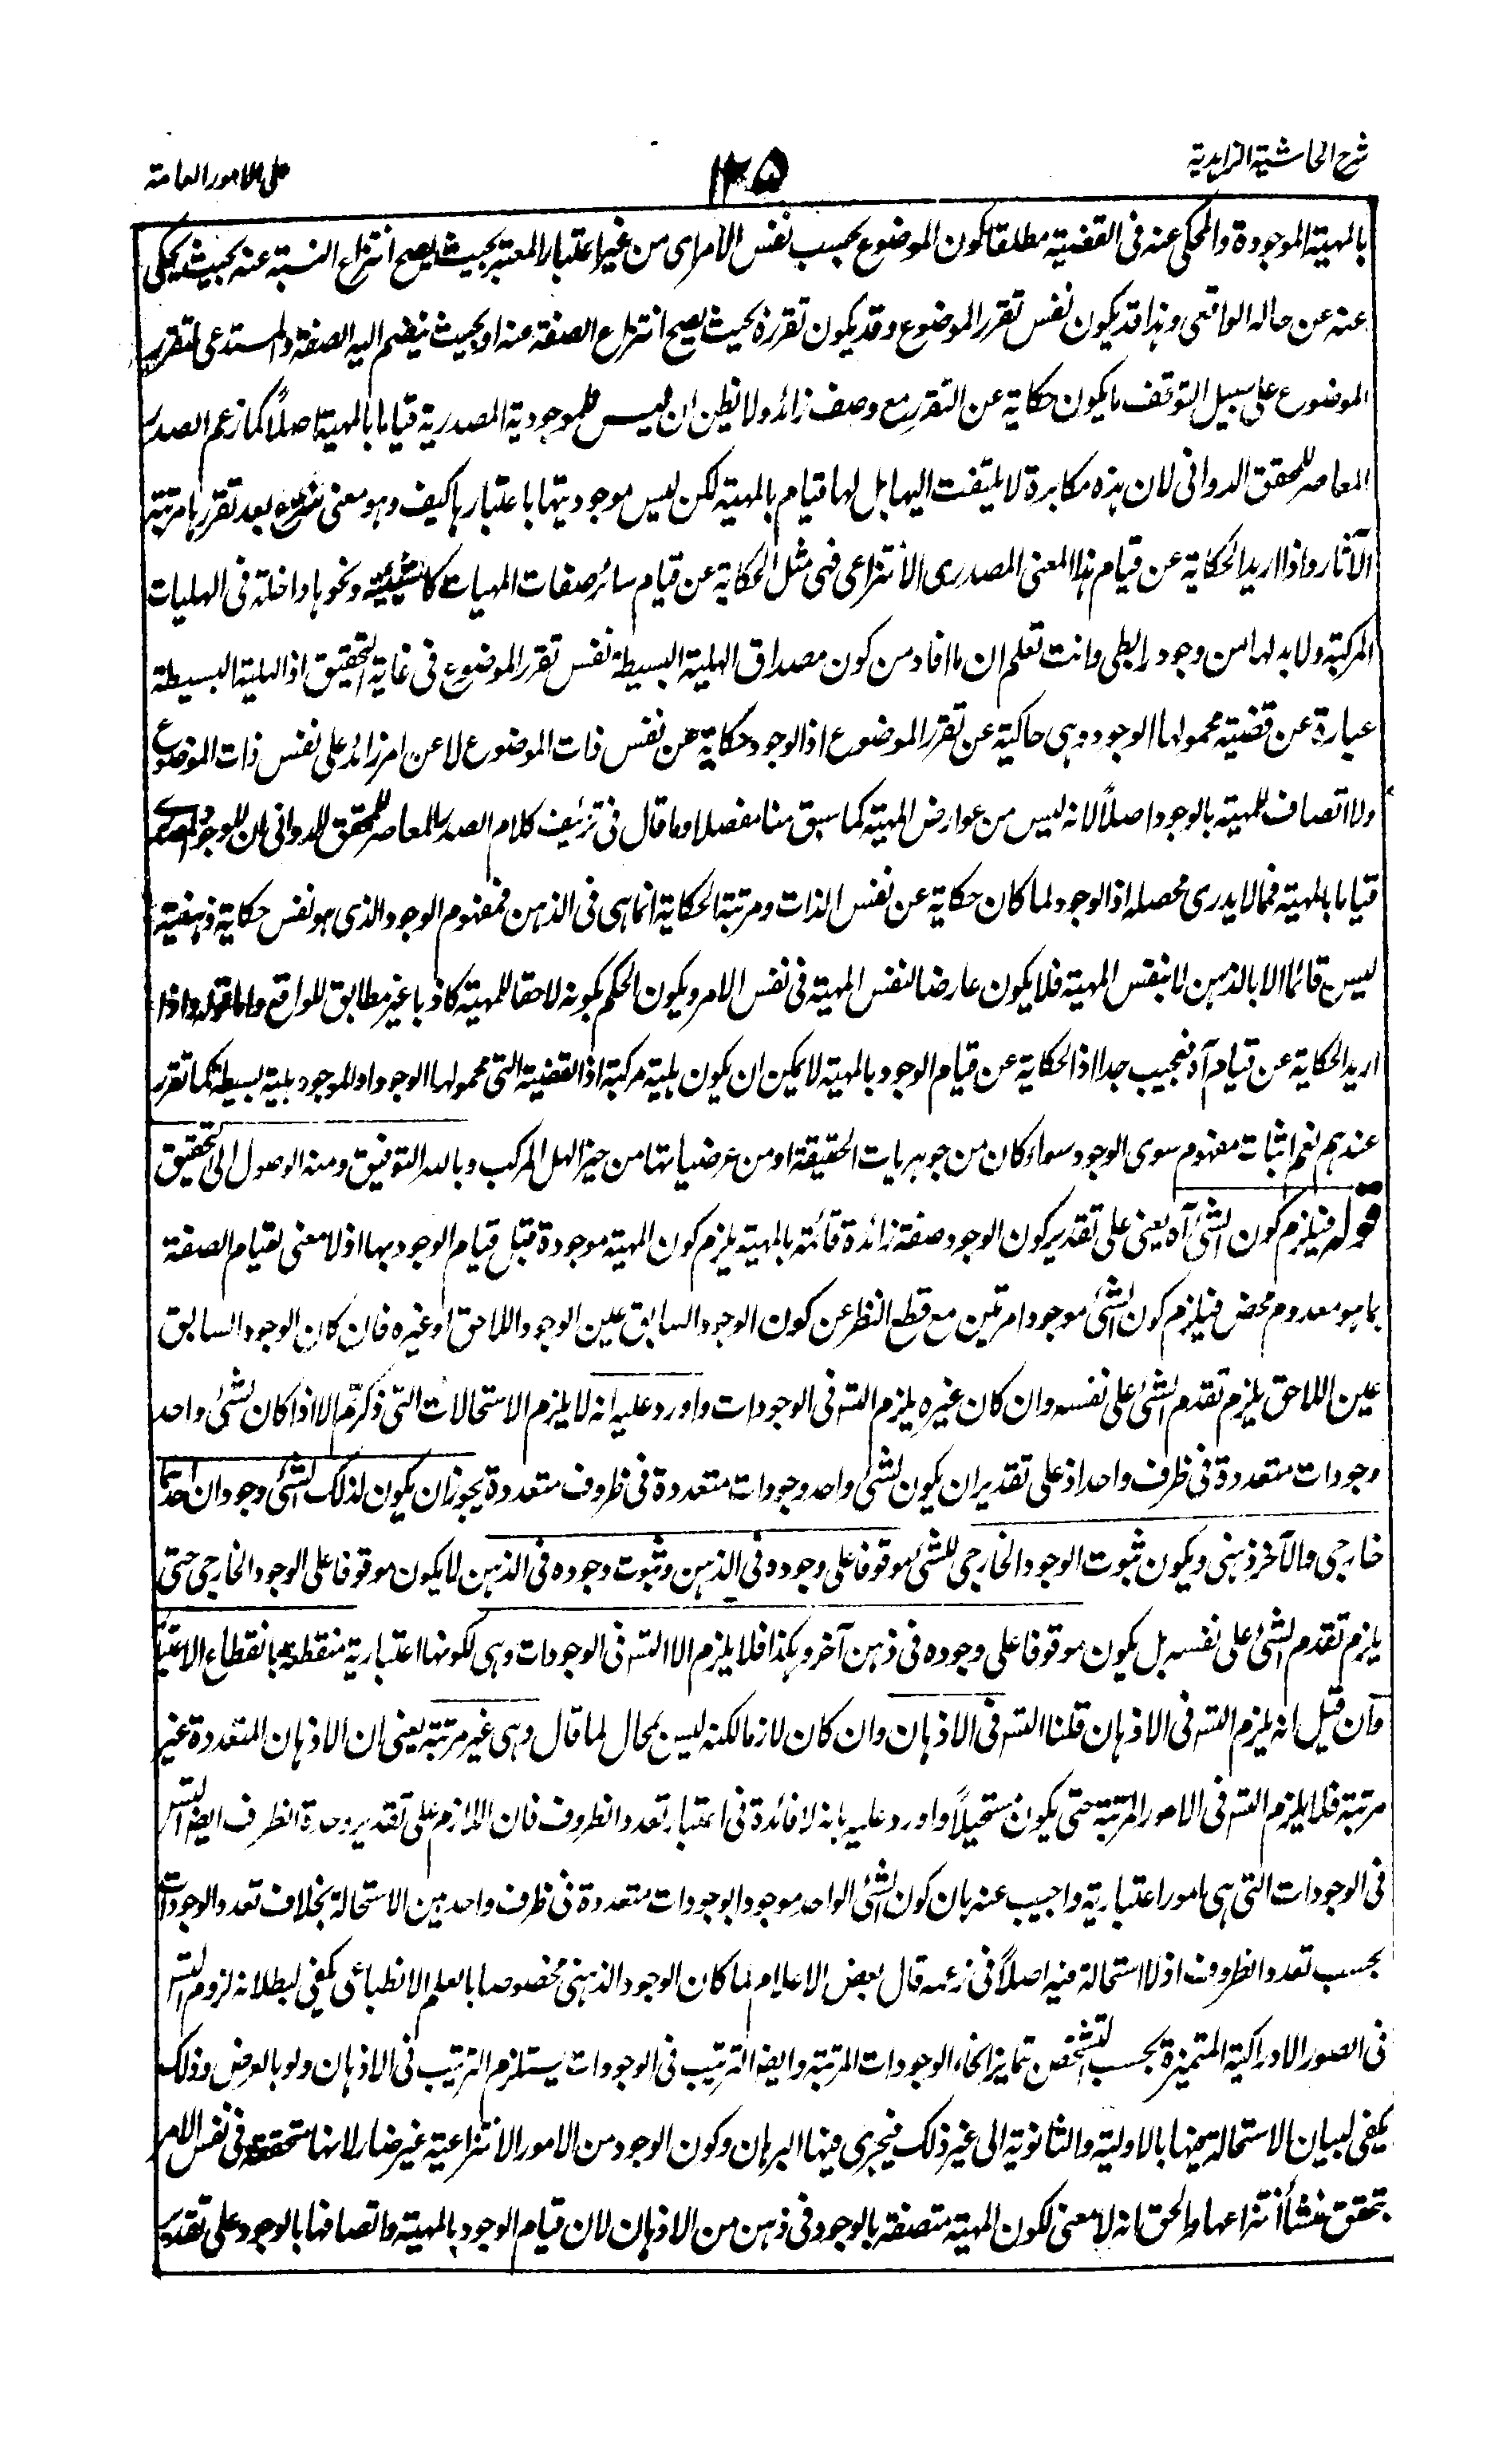 شرح الحاشية الزاهدية
١٢٥
على الامور العامة
بالمهية الموجودة والمحكى عنه فى القضية مطلقا كون الموضوع بحسب نفس الامر اى من غير اعتبار المعتبر بحيث يصح انتزاع النسبة عنه بحيث يحكى
عنه عن حاله الواقعى وهذا قد يكون نفس تقرر الموضوع وقد يكون تقرره بحيث يصح انتزاع الصفة عنه او بحيث ينضم اليه الصفة والمستدعى لتقرر
الموضوع على سبيل التوقف ما يكون حكاية عن التقرر مع وصف زائد ولا تظن ان ليس للموجودية المصدرية قياما بالمهية اصلاً كما زعم الصدر
المعاصر للمحقق الدوانى لان هذه مكابرة لا يلتفت اليها بل لها قيام بالمهية لكن ليس موجوديتها باعتبارها كيف وهو معنى منتزع بعد تقررها مرتبة
الآثار واذا اريد الحكاية عن قيام هذا المعنى المصدرى الانتزاعى فهى مثل الحكاية عن قيام سائر صفات المهيات كالشيئية ونحوها داخلة فى الهليات
المركبة ولا بد لها من وجود رابطى وانت تعلم ان ما افاد من كون مصداق الهلية البسيطة نفس تقرر الموضوع فى غاية التحقيق اذ الهلية البسيطة
عبارة عن قضية محمولها الوجود وهى حاكية عن تقرر الموضوع اذ الوجود حكاية عن نفس ذات الموضوع لا عن امر زائد على نفس ذات الموضوع
ولا اتصاف للمهية بالوجود اصلاً لانه ليس من عوارض المهية كما سبق منا مفصلا وما قال فى تزئيف كلام الصدر المعاصر للمحقق الدوانى بان للوجود المصدرى
قياما بالمهية فمما لا يدرى محصله اذ الوجود لما كان حكاية عن نفس الذات ومرتبة الحكاية انما هى فى الذهن فمفهوم الوجود الذى هو نفس حكاية ذهنية
ليس قائما الا بالذهن لا بنفس المهية فلا يكون عارضا لنفس المهية فى نفس الامر ويكون الحكم بكونه لاحقا للمهية كاذبا غير مطابق للواقع واما قوله واذا
اريد الحكاية عن قيام آه فعجيب جدا اذ الحكاية عن قيام الوجود بالمهية لا يمكن ان يكون هلية مركبة اذ القضية التى محمولها الوجود او الموجود هلية بسيطة كما تقرر
عندهم نعم اثبات مفهوم سوى الوجود سواء كان من جوهريات الحقيقة او من عرضياتها من حيز الهل المركب وبالله التوفيق ومنه الوصول الى التحقيق
قوله فيلزم كون الشئ آه يعنى على تقدير كون الوجود صفة زائدة قائمة بالمهية يلزم كون المهية موجودة قبل قيام الوجود بها اذ لا معنى لقيام الصفة
بما هو معدوم محض فيلزم كون الشئ موجودا مرتين مع قطع النظر عن كون الوجود السابق عين الوجود اللاحق او غيره فان كان الوجود السابق
عين اللاحق يلزم تقدم الشئ على نفسه وان كان غيره يلزم التسـ فى الوجودات واورد عليه انه لا يلزم الاستحالات التى ذكرتم الا اذا كان لشئ واحد
وجودات متعددة فى ظرف واحد اذ على تقدير ان يكون لشئ واحد وجودات متعددة فى ظروف متعددة يجوز ان يكون لذلك الشئ وجودان احدهما
خارجى والآخر ذهنى ويكون ثبوت الوجود الخارجى للشئ موقوفا على وجوده فى الذهن وثبوت وجوده فى الذهن لا يكون موقوفا على الوجود الخارجى حتى
يلزم تقدم الشئ على نفسه بل يكون موقوفا على وجوده فى ذهن آخر وهكذا فلا يلزم الا التسـ فى الوجودات وهى لكونها اعتبارية منقطعة بانقطاع الاعتبار
وان قيل انه يلزم التسـ فى الاذهان قلنا التسـ فى الاذهان وان كان لازما لكنه ليس بمحال لما قال وهى غير مرتبة يعنى ان الاذهان المتعددة غير
مرتبة فلا يلزم التسـ فى الامور المرتبة حتى يكون مستحيلاً واورد عليه بانه لا فائدة فى اعتبار تعدد الظروف فان اللازم على تقدير وحدة الظرف ايضا التسـ
فى الوجودات التى هى امور اعتبارية واجيب عنه بان كون الشئ الواحد موجودا بوجودات متعددة فى ظرف واحد بين الاستحالة بخلاف تعدد الوجودات
بحسب تعدد الظروف اذ لا استحالة فيه اصلاً فى زعمه قال بعض الاعلام لما كان الوجود الذهنى مخصوصا بالعلم الانطباعى يكفى لبطلانه لزوم التسـ
فى الصور الادراكية المتميزة بحسب التشخص تمايز انحاء الوجودات المرتبة وايضا الترتيب فى الوجودات يستلزم الترتيب فى الاذهان ولو بالعرض وذلك
يكفى لبيان الاستحالة بينها بالاولية والثانوية الى غير ذلك فيجرى فيها البرهان وكون الوجود من الامور الانتزاعية غير ضار لانها متحققة فى نفس الامر
بتحقق منشأ انتزاعها والحق انه لا معنى لكون المهية متصفة بالوجود فى ذهن من الاذهان لان قيام الوجود بالمهية واتصافها بالوجود على تقدير